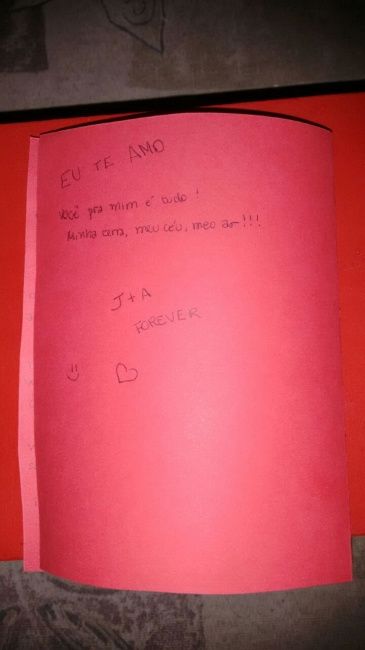 EU TE AMO
Você pra mim é tudo!
Minha cama, meu céu, meo ar!!!
J+A
FOREVER